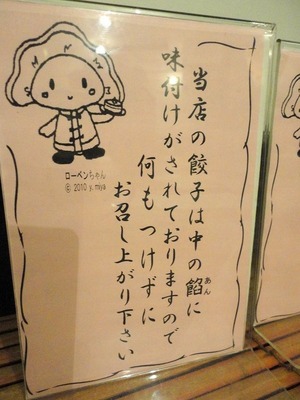 当店の餃子は中の餡に
あん
味付けがされておりますので
何もつけずに
お召し上がり下さい
ローベンちゃん
© 2010 y.miya